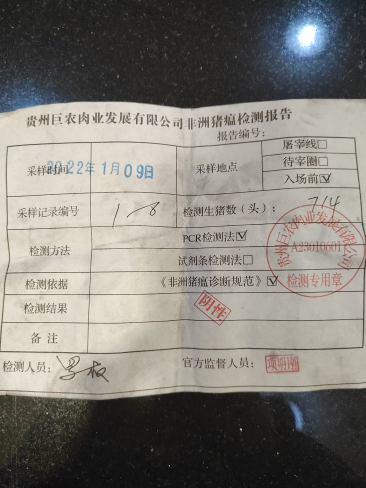 贵州巨农肉业发展有限公司非洲猪瘟检测报告
报告编号:
采样时间 2022年1月09日 采样地点 屠宰线□
待宰圈□
入场前☑
采样记录编号 1-8 检测生猪数(头): 714
检测方法 PCR检测法☑
试剂条检测法□
检测依据 《非洲猪瘟诊断规范》☑
检测结果 阴性
备注
检测人员: 官方监督人员:
贵州巨农肉业发展有限公司
A23010601
检测专用章